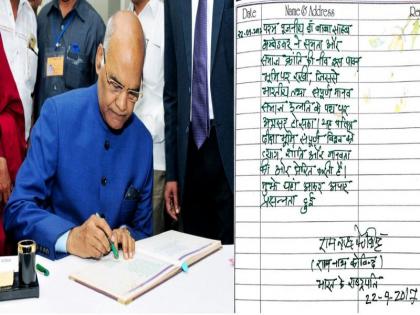 Date
Name & Address
22.09.2017
परम पूजनीय डॉ. बाबा साहब
अम्बेडकर ने समता और
समाज क्रांति की नींव इस पावन
भूमि पर रखी, जिससे
भारतीय तथा संपूर्ण मानव
समाज उन्नति के पथ पर
अग्रसर हो सका। यह पवित्र
दीक्षा भूमि संपूर्ण विश्व को
शांति और मानवता
की ओर प्रेरित करती है।
मुझे यहां आकर अपार
प्रसन्नता हुई
राम नाथ कोविन्द
(राम नाथ कोविन्द)
भारत के राष्ट्रपति
22-9-2017